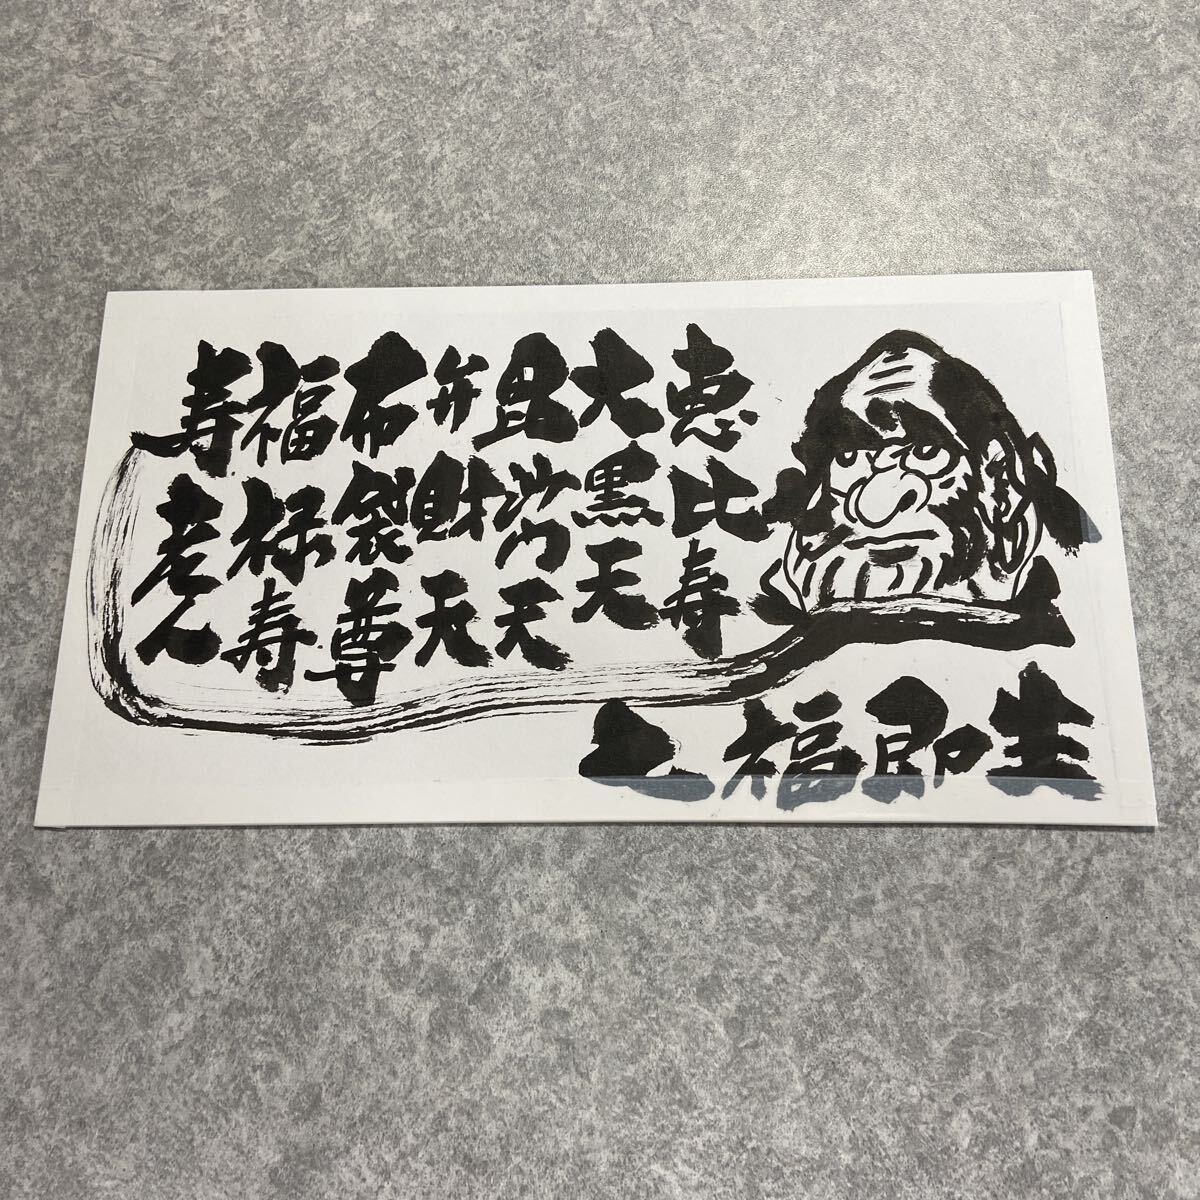 恵比寿
大黒天
毘沙門天
弁財天
布袋尊
福禄寿
寿老人
七福即生